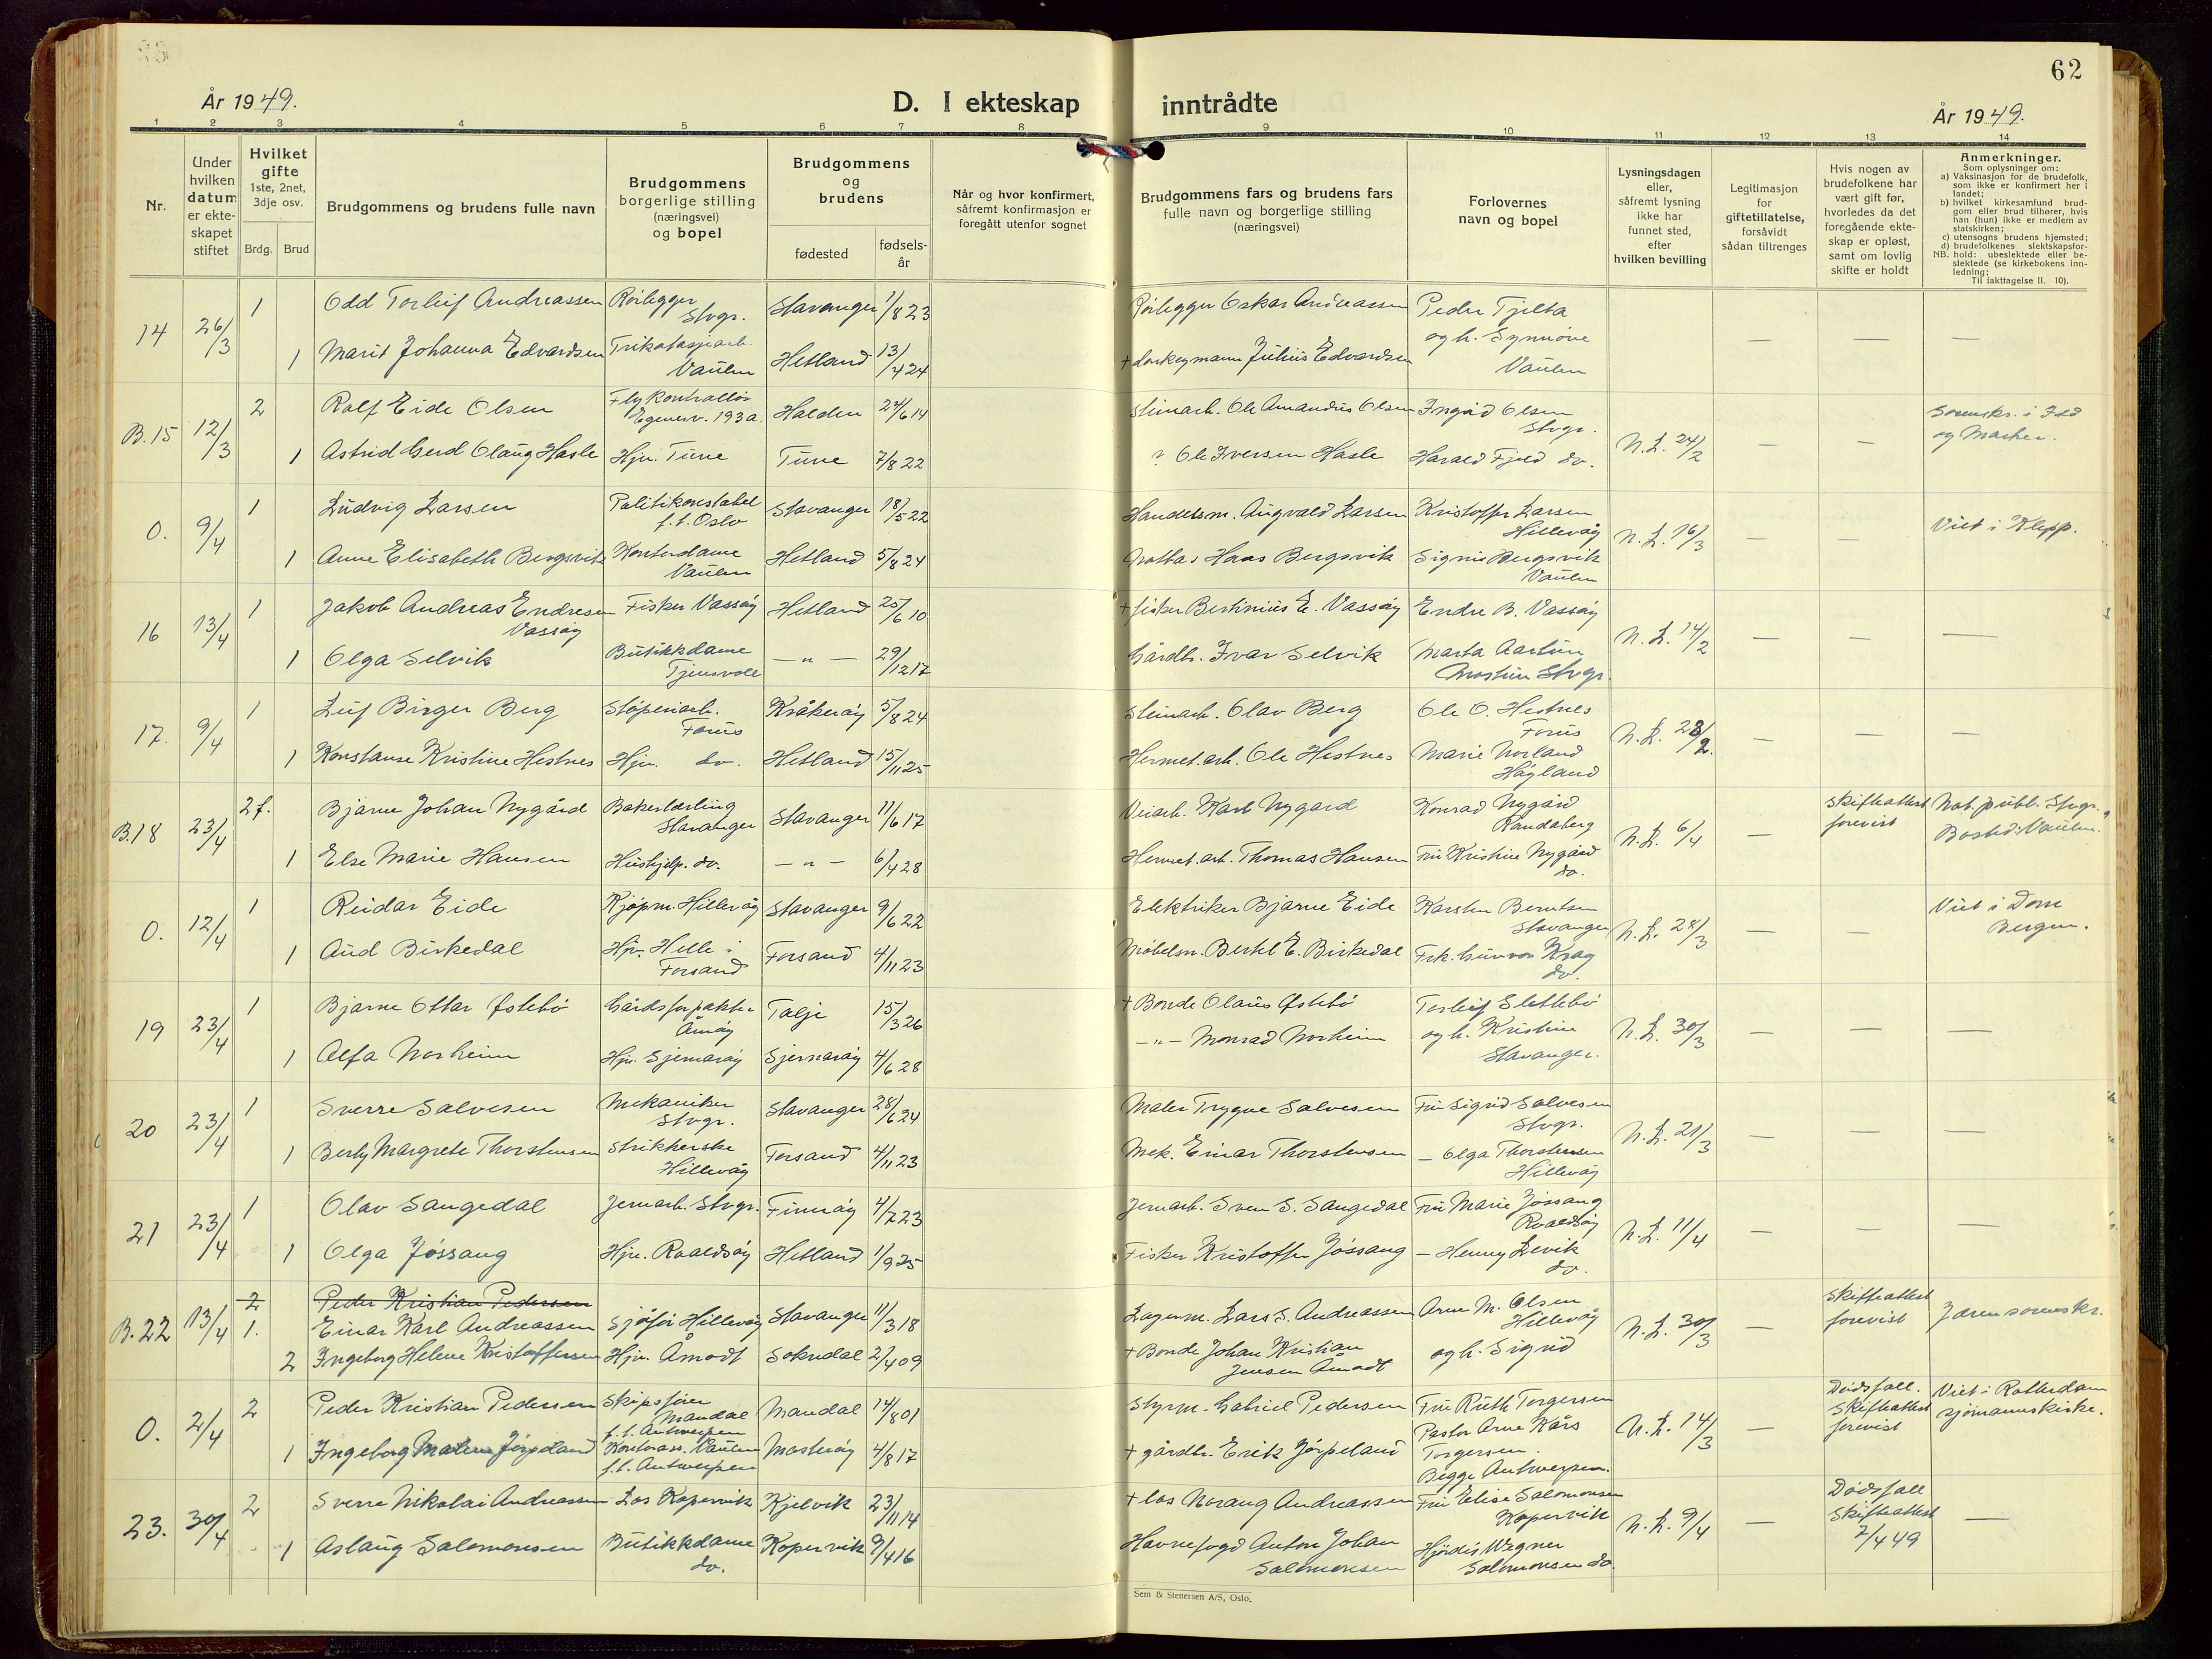 År 1949.
D. I ekteskap
inntrådte
62
År 1949.
1 2 3 4 5 6 7 8 9 10 11 12 13 14
Nr.
Under hvilken datum er ekte- skapet stiftet
Hvilket gifte 1ste, 2net, 3dje osv.
Brdg. Brud
Brudgommens og brudens fulle navn
Brudgommens borgerlige stilling (næringsvei) og bopel
Brudgommens og brudens
fødested
fødsels- år
Når og hvor konfirmert, såfremt konfirmasjon er foregått utenfor sognet
Brudgommens fars og brudens fars fulle navn og borgerlige stilling (næringsvei)
Forlovernes navn og bopel
Lysningsdagen eller, såfremt lysning ikke har funnet sted, efter hvilken bevilling
Legitimasjon for giftetillatelse, forsåvidt sådan tiltrenges
Hvis nogen av brudefolkene har vært gift før, hvorledes da det foregående ekte- skap er opløst, samt om lovlig skifte er holdt
Anmerkninger.
Som oplysning om:
a) Vaksinasjon for de brudefolk, som ikke er konfirmert her i landet;
b) hvilket kirkesamfund brud- gom eller brud tilhører, hvis han (hun) ikke er medlem av statskirken;
c) utensogns brudens hjemsted;
d) brudefolkenes slektskapsfor- hold: ubeslektede eller be- slektede (se kirkebokens inn- ledning;
NB. Til iakttagelse II. 10).
14 26/3 1 Odd Torleif Andreassen Rørlegger Stvgr. Stavanger 1/8 23 Rørlegger Oskar Andreassen Peder Tjelta
1 Marit Johanna Edvardsen Trikotasjearb. Vaulen Hetland 13/4 24 + donkeymann Julius Edvardsen og h. Synnøve Vaulen — — —
B.15 12/3 2 Rolf Eide Olsen Flykontrollør Egenesv. 193a. Halden 24/6 14 Steinarb. Ole Amandus Olsen Ingrid Olsen Stvgr. N.L. 24/2 — — Sorenskr. i Idd og Marker.
1 Astrid Gerd Olaug Hasle Hjv. Tune Tune 7/8 22 ? Ole Iversen Hasle Harald Fjeld do.
O. 9/4 1 Ludvig Larsen Politikonstabel f.t. Oslo Stavanger 18/5 22 Handelsm. Augvald Larsen Kristoffer Larsen Hillevåg N.L. 16/3 — — Viet i Klepp.
1 Anne Elisabeth Bergsvik Kontordame Vaulen Hetland 5/8 24 Haas Bergsvik Signe Bergsvik Vaulen
16 13/4 1 Jakob Andreas Endresen Vassøy Fisker Vassøy Hetland 25/6 10 + fisker Bertinius E. Vassøy Endre B. Vassøy N.L. 14/2 — — —
1 Olga Selvik Butikkdame Tjensvoll — " — 29/12 17 Gårdbr. Ivar Selvik Marta Aartun Stvgr.
17. 9/4 1 Leif Birger Berg Støperiarb. Forus Kråkerøy 5/8 24 Steinarb. Olav Berg Ole O. Hestnes Forus N.L. 28/2. — — —
1 Konstanse Kristine Hestnes Hjv. do. Hetland 15/11 25 Hermet.arb. Ole Hestnes Marie Norland Høgland
B.18 23/4 2 f. Bjarne Johan Nygård Bakerlærling Stavanger Stavanger 11/6 17 Veiarb. Karl Nygard Konrad Nygård Randaberg N.L. 6/4 — Skifteattest forevist Not. publ. Stvgr. Bosted: Vaulen.
1 Else Marie Hansen Hushjelp. do. — " — 6/4 28 Hermet. arb. Thomas Hansen Fru Kristine Nygård do.
O. 12/4 1 Reidar Eide Kjøpm. Hillevåg Stavanger 9/6 22 Elektriker Bjarne Eide Karsten Berntsen Stavanger N.L. 28/3 — — Viet i Dom Bergen.
1 Aud Birkedal Hjv. Helle i Forsand Forsand 4/11 23 Møbelsn. Bertel E. Birkedal Frk. Gunvor Krag do.
19 23/4 1 Bjarne Ottar Østebø Gårdsforpakter Åmøy Talje 15/3 26 + Bonde Olaus Østebø Torleif Slettebø N.L. 30/3 — — —
1 Alfa Norheim Hjv. Sjernarøy Sjernarøy 4/6 28 — " — Monrad Norheim og h. Kristine Stavanger.
20 23/4 1 Sverre Salvesen Mekaniker Stvgr. Stavanger 28/6 24 Maler Trygve Salvesen Fru Sigrid Salvesen Stvgr. N.L. 21/3 — — —
1 Berly Margrete Thorstensen Strikkerske Hillevåg Forsand 4/11 23 Mek. Einar Thorstensen — Olga Thorstensen Hillevåg
21 23/4 1 Olav Sangedal Jernarb. Stvgr. Finnøy 4/7 23 Jernarb. Sven S. Sangedal Fru Marie Jøssang Roaldsøy N.L. 11/4 — — —
1 Olga Jøssang Hjv. Roaldsøy Hetland 1/9 25 Fisker Kristoffer Jøssang — Henny Levik do.
B.22 13/4 2 Peder Kristian Pedersen
1. Einar Karl Andreassen Sjåfør Hillevåg Stavanger 11/3 18 Lagerm. Lars S. Andreassen Arne M. Olsen Hillevåg N.L. 30/3 — Skifteattest forevist Jæren sorenskr.
2 Ingeborg Helene Kristoffersen Hjv. Åmodt Sokndal 2/4 09 + Bonde Johan Kristian Jensen Åmodt og h. Sigrid
O. 2/4 2 Peder Kristian Pedersen Skipsfører Mandal f.t. Antwerpen Mandal 14/8 01 Styrm. Gabriel Pedersen Fru Ruth Torgersen N.L. 14/3 — Dødsfall. Skifteattest forevist Viet i Rotterdam sjømannskirke.
1 Ingeborg Malene Jørpeland Kontorass. Vaulen f.t. Antwerpen Mosterøy 4/8 17 + gårdbr. Erik Jørpeland Pastor Arne Kårs Torgersen. Begge Antwerpen.
23. 30/4 2 Sverre Nikolai Andreassen Los Kopervik Kjelvik 23/11 14 + los Norang Andreassen Fru Elise Salomonsen Kopervik N.L. 9/4 — Dødsfall Skifteattest 7/4 49 —
1 Aslaug Salomonsen Butikkdame do. Kopervik 9/4 16 Havnefogd Anton Johan Salomonsen Hjørdis Wegner Salomonsen do.
Sem & Stenersen A/S, Oslo.